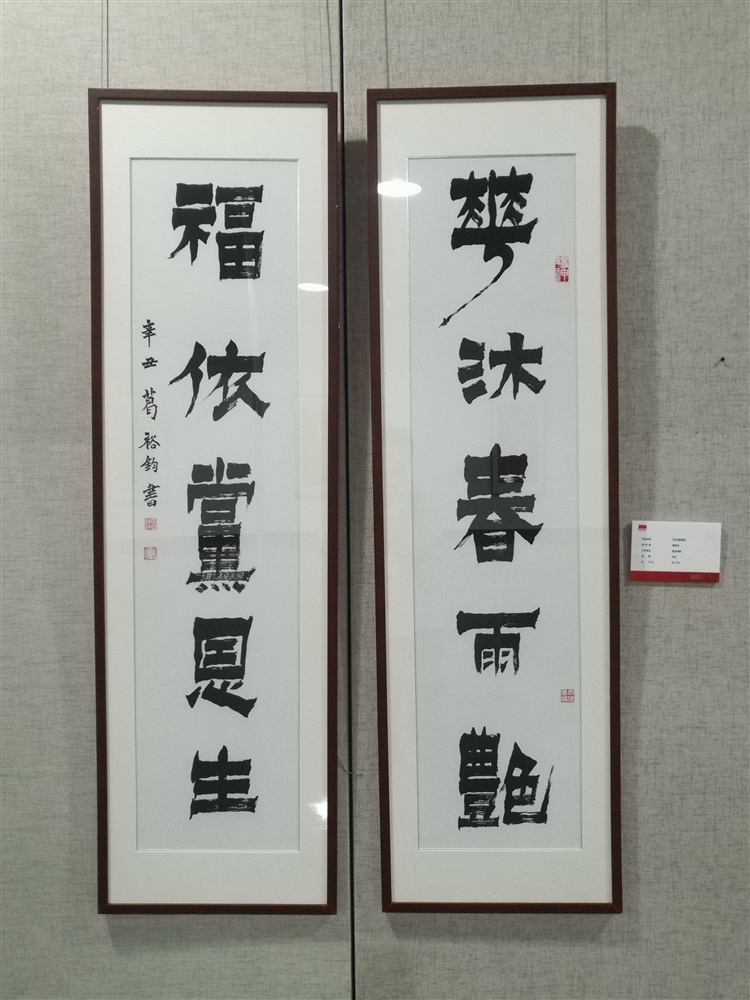 華沐春雨艷
福依黨恩生
辛丑 葛裕鈞書